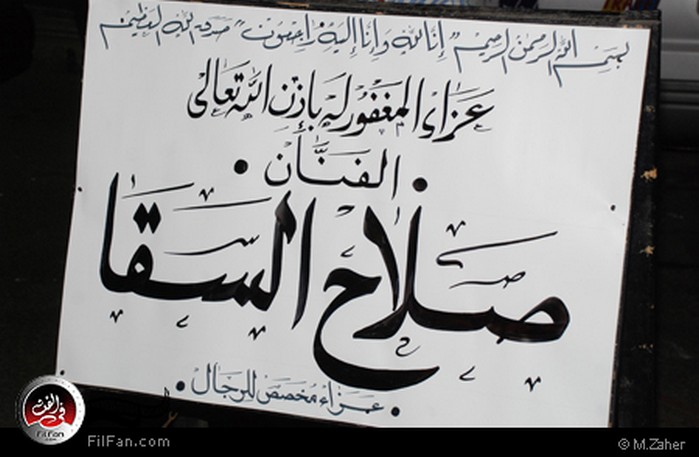 بسم الله الرحمن الرحيم "إنا لله وإنا إليه راجعون" صدق الله العظيم
عزاء المغفور له بإذن الله تعالى
الفنان
صلاح السقا
عزاء مخصص للرجال
في الفن
FilFan
FilFan.com
© M.Zaher